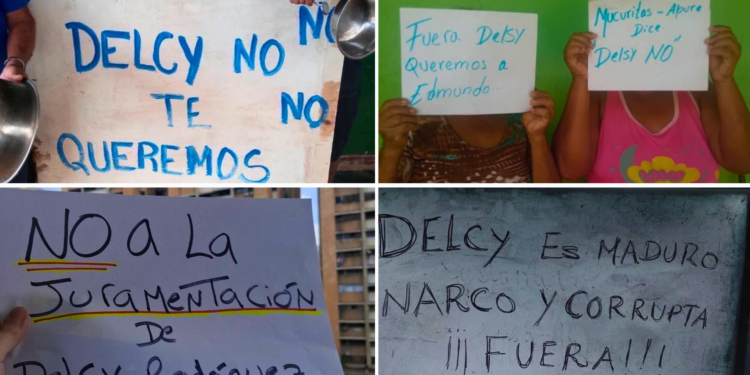 NO
DELCY NO
TE NO
QUEREMOS
Fuera Delsy
Queremos a
Edmundo
Mucuritas - Apure
Dice
"Delsy NO"
NO a La
Juramentación
De
Delcy Rodríguez
DELCY Es MADURO
NARCO Y CORRUPTA
¡¡¡ FUERA!!!